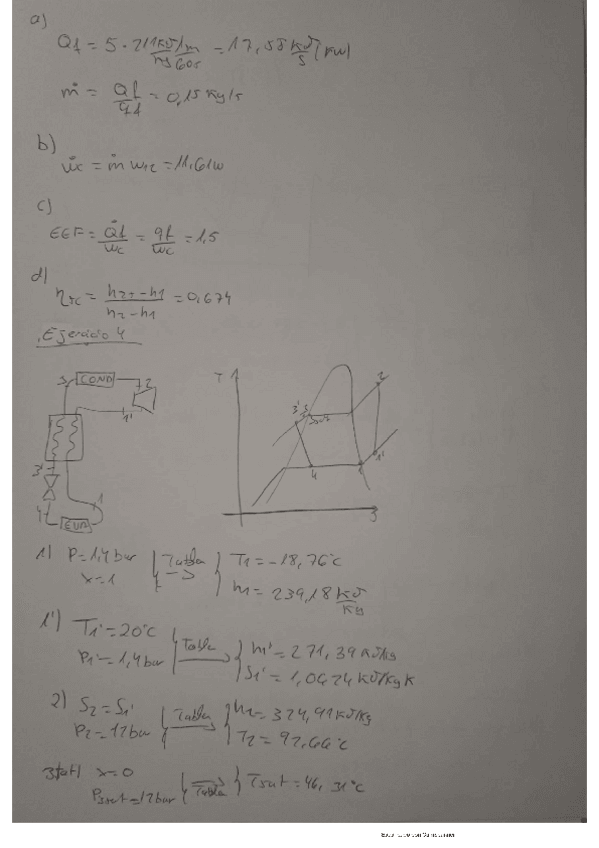 a)
Qf = 5 · 211 kJ/m / kg 60s = 17,58 kJ/s (kW)
ṁ = Qf / qf = 0,15 kg/s
b)
ẇc = ṁ w12 = 11,61w
c)
EEF = Q̇f / ẇc = qf / wc = 1,5
d)
ηsc = h2s - h1 / h2 - h1 = 0,674
Ejercicio 4
COND 2
3 1'
3'
4 1
EVA
T 2
3' 3 3sat
1'
4 1
S
1) P = 1,4 bar
x = 1
Tabla
T1 = -18,76°C
h1 = 239,18 kJ/kg
1') T1' = 20°C
P1' = 1,4 bar
Tabla
h1' = 271,39 kJ/kg
S1' = 1,0624 kJ/kg K
2) S2 = S1'
P2 = 12 bar
Tabla
h2 = 324,91 kJ/kg
T2 = 92,66°C
3sat) x = 0
P3sat = 12 bar
Tabla
Tsat = 46,31°C